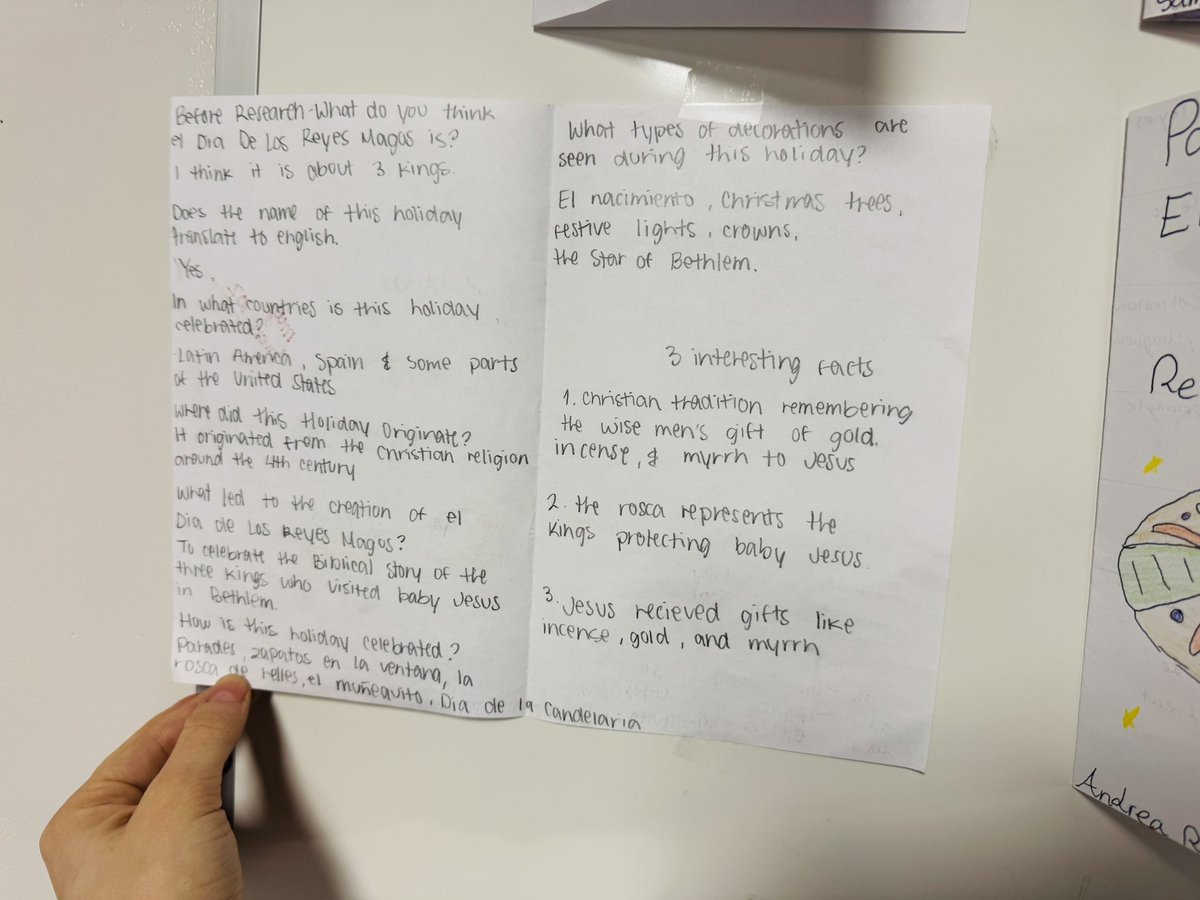 Before Research-What do you think
el Dia De Los Reyes Magos is?
I think it is about 3 kings.
Does the name of this holiday
translate to english.
Yes.
In what countries is this holiday
celebrated?
Latin America, Spain & some parts
of the United States
Where did this Holiday Originate?
It originated from the Christian religion
around the 4th century
What led to the creation of el
Dia de Los Reyes Magos?
To celebrate the Biblical story of the
three kings who visited baby Jesus
in Bethlem.
How is this holiday celebrated?
Parades, zapatos en la ventana, la
rosca de relles, el muñequito, Dia de la Candelaria
What types of decorations are
seen during this holiday?
El nacimiento, Christmas trees,
festive lights, crowns,
the star of Bethlem.
3 interesting facts
1. Christian tradition remembering
the wise men's gift of gold.
incense, & myrrh to Jesus
2. the rosca represents the
kings protecting baby Jesus.
3. Jesus recieved gifts like
incense, gold, and myrrh
Re
Andrea R